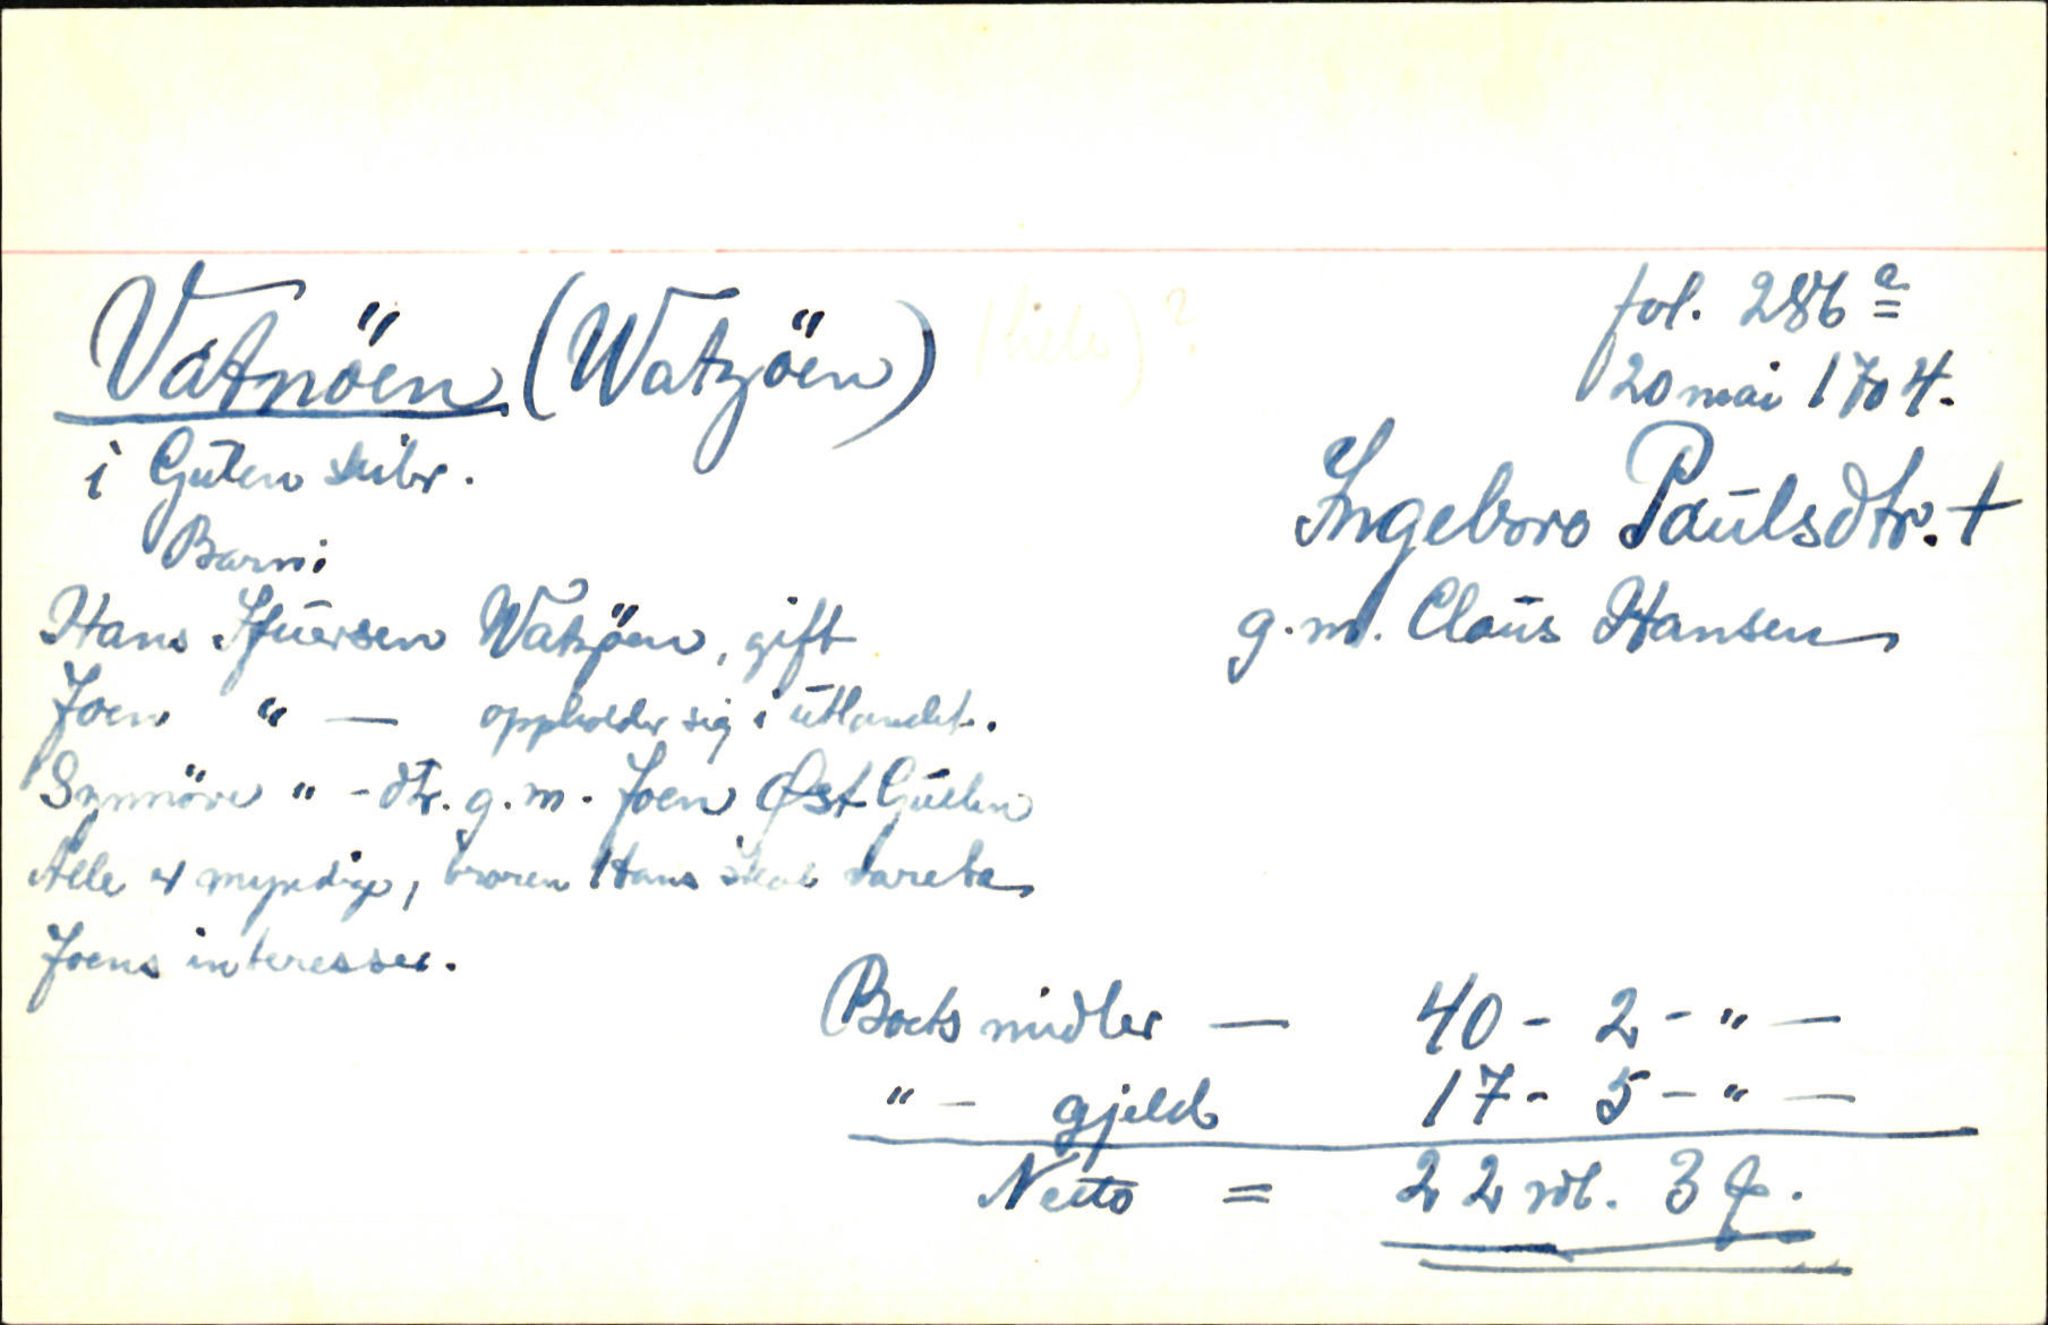 Vatnöen (Watzöen)
i Gulen skibr.
fol. 286 a
20 mai 1704.
Ingeboro Paulsdtr. +
g.m. Claus Hansen
Barn:
Hans Ifuersen Watzöen, gift
Joen " — oppholder sig i utlandet.
Synnöve " - dtr. g.m. Joen Øst Gulen
Alle er myndige, broren Hans skal vareta
Joens interesser.
Boets midler — 40 - 2 - " —
" - gjeld 17 - 5 - " —
Netto = 22 rdl. 3